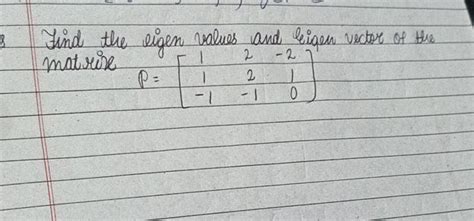 Find the eigen values and Eigen vector of the
matrix
P = [ 1 2 -2
1 2 1
-1 -1 0 ]